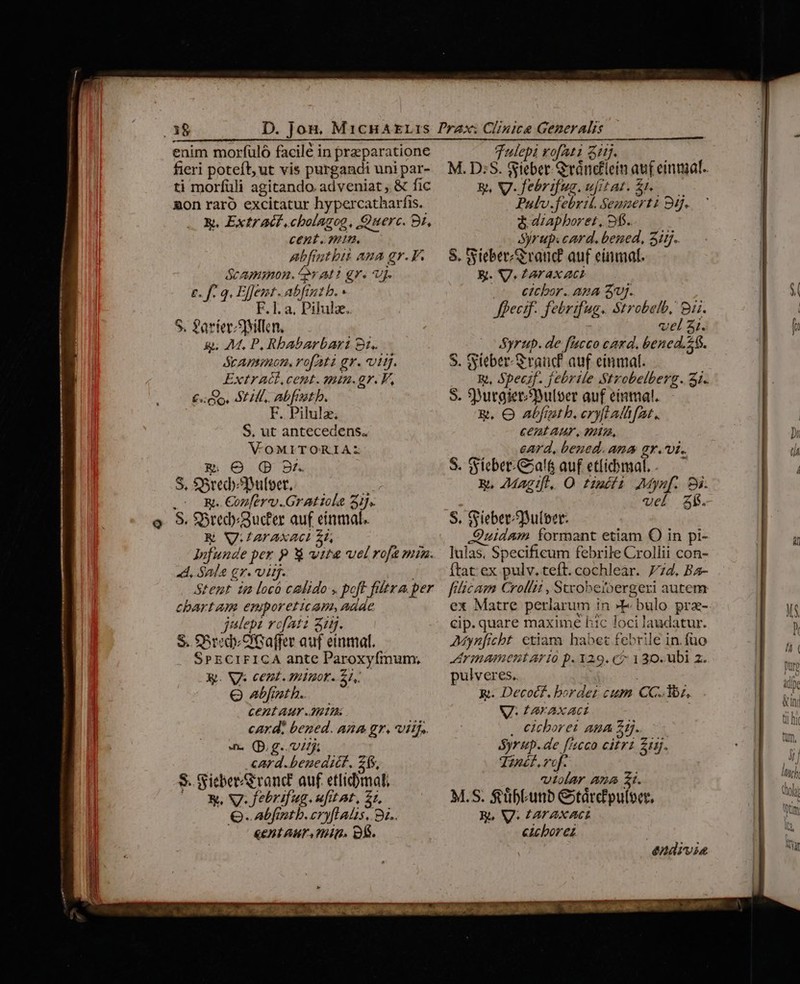 18 D. JOH. MICHAELIS Prax: Clinica Generalis
enim morſulò facilè in præparatione
fieri poteſt, ut vis purgandi uni par-
ti morſuli agitando adveniat, & ſic
non rarò excitatur hypercatharſis.
℞. Extract. cholagog. Querc. ℈i,
cent. min.
abſinthii ana gr. V.
Scammon. gr. vj.
c. ſ. q. Eſſent. abſinth.
F. l. a. Pilulæ.
S. Laxier-Pillen,
℞. M. P. Rhabarbari ℈i.
Scammon. roſati gr. viij.
Extract. cent. min. gr. V.
Still. abſinth.
F. Pilulæ.
S. ut antecedens.
VOMITORIA:
S. Brech-Pulver.
℞. Conſerv. Gratiolæ ʒij.
S. Brech-Zucker auf einmal.
℞ 🜄. taraxaci ℥i,
Infunde per vitæ vel roſæ min.
Sale gr. viij.
Stent in locò calido, poſt filtra per
chartam emporeticam, adde
julepi roſati ʒiij.
S. Brech-Waſſer auf einmal.
SPECIFICA ante Paroxyſmum.
℞. 🜄. cent. minor. ℥i,
abſinth.
centaur. min.
card. bened. ana gr. viij.
card. benedict. ℥ß,
S. Fieber-Tranck auf etlichmal.
℞, 🜄. febrifug. uſitat. ℥i,
abſinth. cryſtalis. ℈i.
centaur. min. ℈ß.
Julepi roſati ʒiij.
M. D: S. Fieber-Tråncklein auf einmal.
℞, 🜄. febrifug. uſitat. ℥i.
Pulv. febril. Sennerti ℈ij.
diaphoret. ℈ß.
Syrup. card. bened. ʒiij.
S. Fieber-Tranck auf einmal.
℞. 🜄. taraxaci
cichor. ana ʒvj.
ſpecif. febrifug. Strobelb. ℈ii.
vel ʒi.
Syrup. de ſucco card. bened. ℥ß.
S. Fieber-Tranck auf einmal.
℞. Specif. febrile Strobelberg. ʒi.
S. Purgier-Pulver auf einmal.
℞. abſinth. cryſtalliſat.
centaur. min,
card. bened. ana gr. vi.
S. Fieber-Saltz auf etlichmal.
℞, Magiſt. tincti Mynſ. ℈i.
vel ʒß.
S. Fieber-Pulver.
Quidam formant etiam in pi-
lulas, Specificum febrile Crollii con-
ſtat ex pulv. teſt. cochlear. Vid. Ba-
ſilicam Crollii, Strobelbergeri autem
ex Matre perlarum in bulo præ-
cip. quare maximè hîc loci laudatur.
Mynſicht etiam habet febrile in ſuo
Armamentario p. 129. & 130. ubi 2.
pulveres.
℞. Decoct. hordei cum CC. ℔i,
🜄. taraxaci
cichorei ana ℥ij.
Syrup. de ſucco citri ℥iij.
Tinct. roſ.
violar ana ℥i.
M. S. Kühl-und Stårckpulver.
℞, 🜄. taraxaci
cichorei
endiviæ